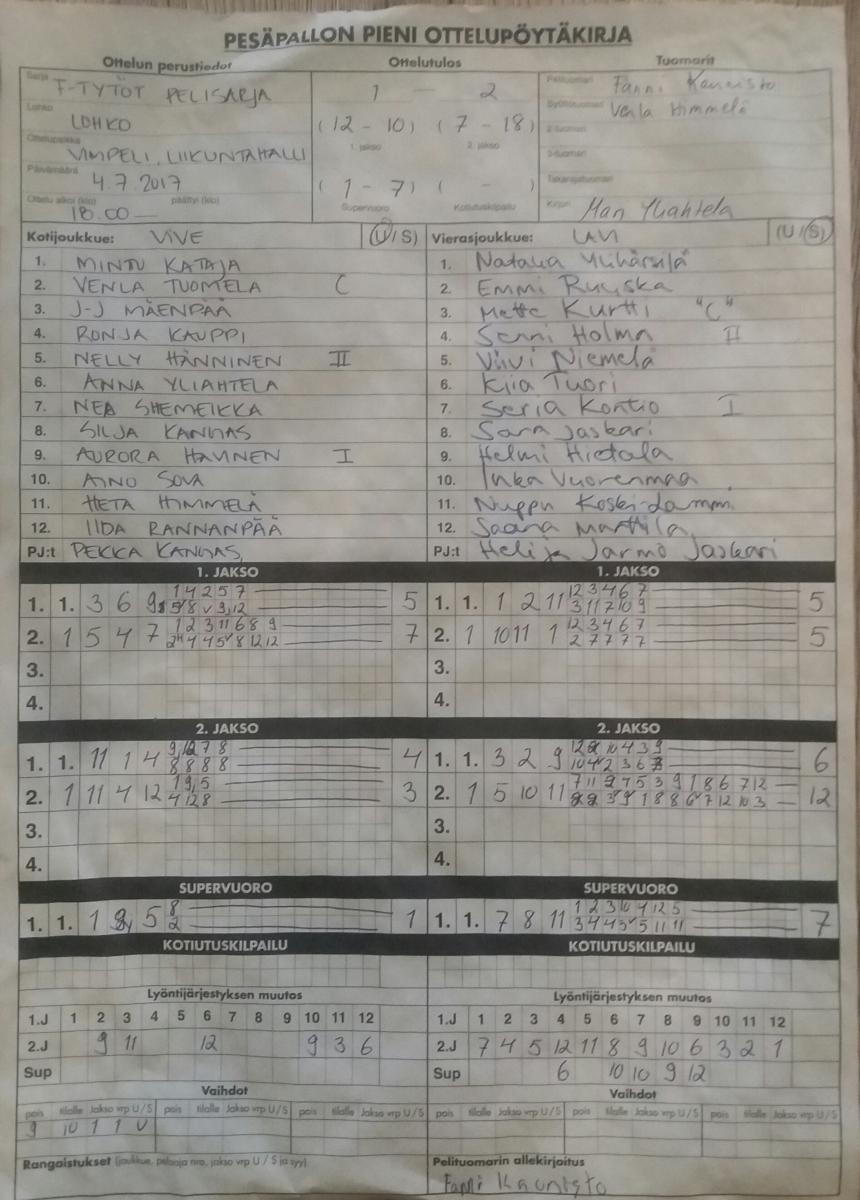 PESÄPALLON PIENI OTTELUPÖYTÄKIRJA
Ottelun perustiedot Ottelutulos Tuomarit
Sarja F-TYTÖT PELISARJA 1 - 2 Pelituomari Fanni Kaunisto
Lohko LOHKO (12 - 10) (7 - 18) Syöttötuomari Venla Himmelä
1. jakso 2. jakso 2-tuomari
Ottelupaikka VIMPELI, LIIKUNTAHALLI 3-tuomari
Päivämäärä 4.7.2017 (1 - 7) ( - ) Takarajatuomari
Ottelu alkoi (klo) 18.00 päättyi (klo) Supervuoro Kotiutuskilpailu Kirjuri Yliahtela
Kotijoukkue: ViVE (U/S) Vierasjoukkue: (U/S)
1. MINTU KATAJA 1. Natalia
2. VENLA TUOMELA C 2. Emmi Ruuska
3. J-J MÄENPÄÄ 3. Mette Kurtti "C"
4. RONJA KAUPPI 4. Senni Holma II
5. NELLY HÄNNINEN II 5. Viivi Niemelä
6. ANNA YLIAHTELA 6. Kiia Tuori
7. NEA SHEMEIKKA 7. Seria Kontio I
8. SILJA KANGAS 8. Sara Jaskari
9. AURORA I 9. Helmi Hietala
10. AINO SOVA 10. Inka Vuorenmaa
11. HETA HIMMELÄ 11. Nuppu
12. IIDA RANNANPÄÄ 12. Saana Marttila
PJ:t PEKKA KANGAS PJ:t Heli ja Jarmo Jaskari
1. JAKSO 1. JAKSO
1. 1. 3 6 9 1 4 2 5 7 5 1. 1. 1 2 11 12 3 4 6 7 5
5 8 3 12 3 11 7 10 9
2. 1 5 4 7 1 2 3 11 6 8 9 7 2. 1 10 11 1 12 3 4 6 7 5
2 4 4 5 8 12 12 2 7 7 7 7
3. 3.
4. 4.
2. JAKSO 2. JAKSO
1. 1. 11 1 4 9 12 7 8 4 1. 1. 3 2 9 10 4 3 9 6
8 8 8 8 10 4 2 3 6
2. 1 11 4 12 1 9 5 3 2. 1 5 10 11 7 11 9 7 5 3 9 1 8 6 7 12 12
4 12 8 3 9 1 8 8 6 7 12 10 3
3. 3.
4. 4.
SUPERVUORO SUPERVUORO
1. 1. 1 5 8 1 1. 1. 7 8 11 1 2 3 10 4 12 5 7
2 3 4 4 5 5 11 11
KOTIUTUSKILPAILU KOTIUTUSKILPAILU
Lyöntijärjestyksen muutos Lyöntijärjestyksen muutos
1.J 1 2 3 4 5 6 7 8 9 10 11 12 1.J 1 2 3 4 5 6 7 8 9 10 11 12
2.J 9 11 12 9 3 6 2.J 7 4 5 12 11 8 9 10 6 3 2 1
Sup Sup 6 10 10 9 12
Vaihdot Vaihdot
pois tilalle Jakso vrp U/S pois tilalle Jakso vrp U/S pois tilalle Jakso vrp U/S pois tilalle Jakso vrp U/S pois tilalle Jakso vrp U/S pois tilalle Jakso vrp U/S
9 10 1 1 U
Rangaistukset (joukkue, pelaaja nro, jakso vrp U / S ja syy) Pelituomarin allekirjoitus
Fanni Kaunisto